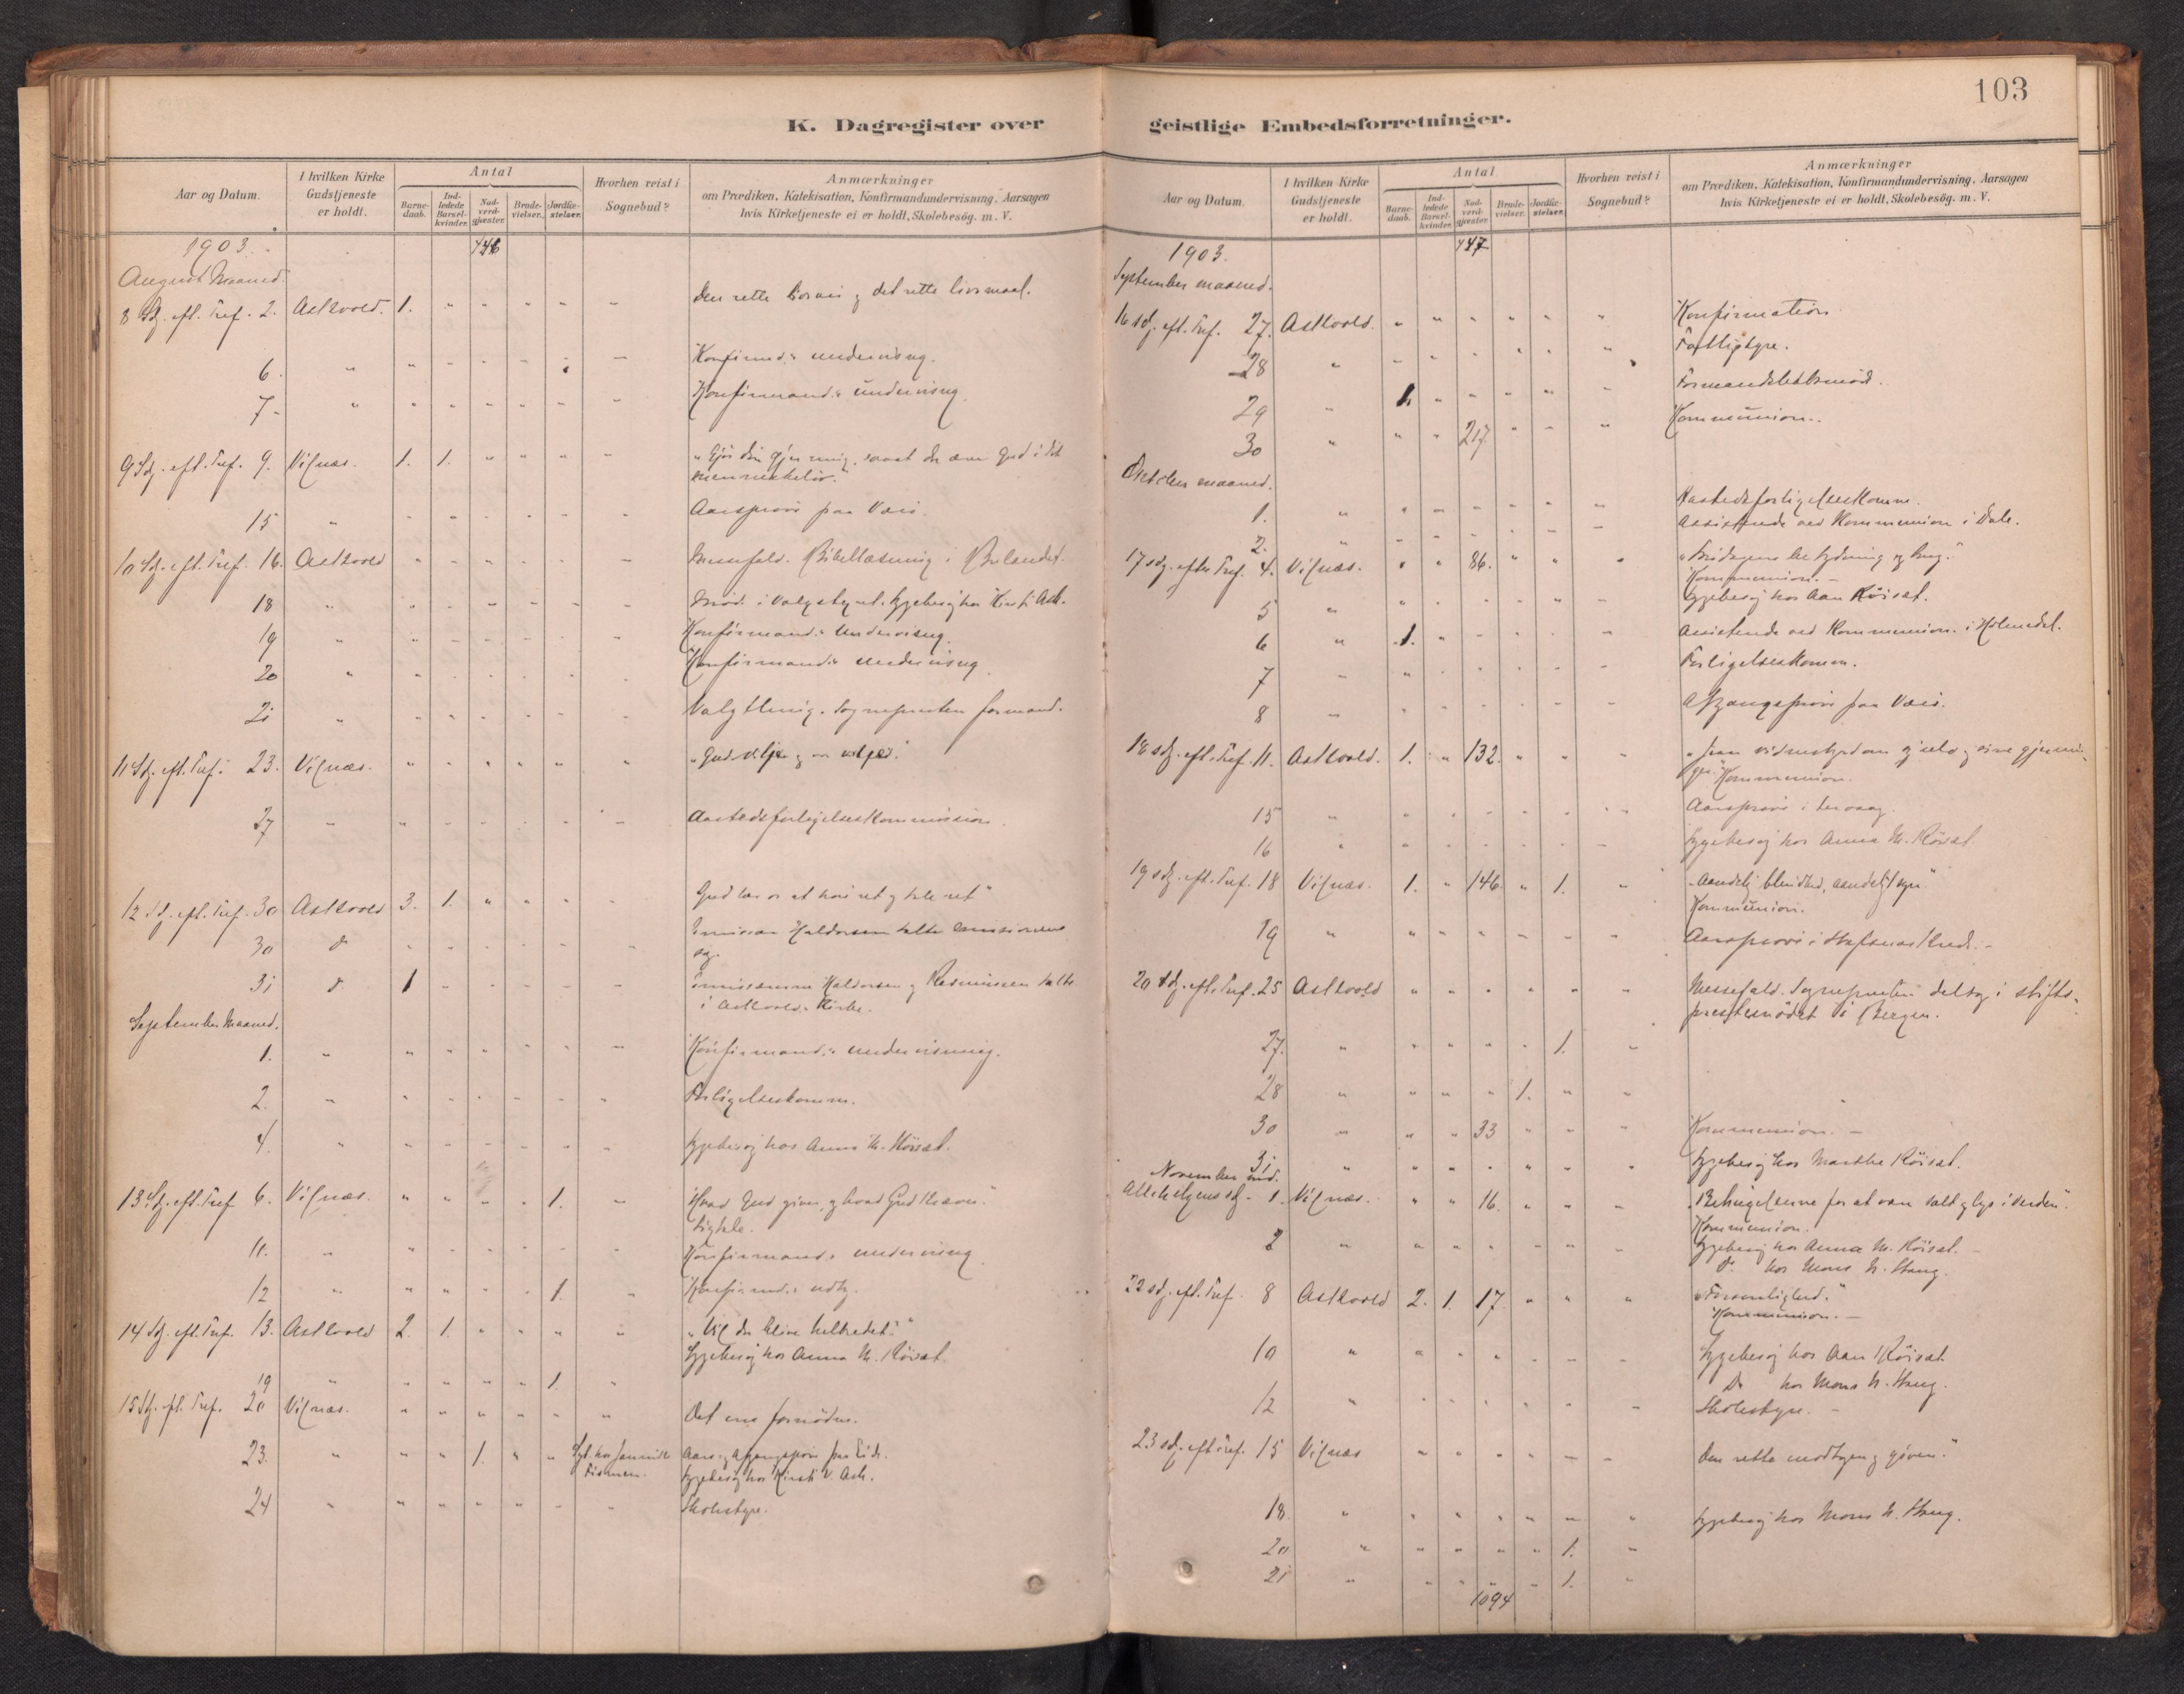 103
K. Dagregister over
geistlige Embedsforretninger.
Aar og Datum.
I hvilken Kirke Gudstjeneste er holdt.
Antal
Barnedaab.
Indledede Barselkvinder.
Nadverdgjester.
Brudevielser.
Jordfæstelser.
Hvorhen reist i Sognebud?
Anmærkninger
om Prædiken, Katekisation, Konfirmandundervisning. Aarsagen
hvis Kirketjeneste ei er holdt, Skolebesög. m. V.
1903. 446
August Maaned.
8 Sdg. eft. Tref. 2. Askvold. 1. " " " " " Den rette og det rette livsmaal.
6. " " " " " " " Konfirmd.s undervisng.
7. " " " " " " " Konfirmand.s undervisng
9 Sdg. eft. Tref. 9. Vilnæs. 1. 1. " " " " "Gjör din gjerning, saa at du ærer Gud i dit
15 " " " " " " " Aarspröve paa Værö.
10 Sdg. eft. Tref. 16. Askvold " " " " " " Messefald. Bibellæsning i Bulandet.
18 " " " " " " " Möde i Valgstyret. Sygebesøg hos Kirsti Ask.
19 " " " " " " " Konfirmand.s undervisng.
20 " " " " " " " Konfirmand.s undervisng
21 " " " " " " " Valgthing. Sognepresten formand.
11 Sdg. eft. Tref. 23. Vilnæs. " " " " " " "Guds vilje og vor vilje."
27 " " " " " " " Aastedsforligelseskommission.
12 Sdg. eft. Tref. 30 Askvold 3. 1. " " " " Gud lær os at höre ret og tale ret"
30 do " " " " " " Haldorsen talte missionens
sag.
31 do 1 " " " " " Haldorsen og Rasmussen talte
i Askvold Kirke.
September Maaned.
1. " " " " " " " Konfirmand.s undervisning.
2. " " " " " " " Forligelseskomm.
4. " " " " " " " Sygebesøg hos Anna M. Röiset.
13 Sdg. eft. Tref 6. Vilnæs. " " " " 1. " "Hvad Gud giver, og hvad Gud kræver."
Ligtale.
11. " " " " " " " Konfirmand.s undervisng
12 " " " " " 1. " Konfirmd.s udtg.
14 Sdg. eft. Tref. 13. Askvold 2. 1. " " " " "Vil du blive helbredet?"
Sygebesøg hos Anna M. Röiset.
19 " " " " " 1.
15 Sdg. eft. Tref. 20 Vilnæs. " " " " " " Det ene fornödne.
23. " " " 1. " " Sgb. hos Aars- og afgangspröve
Sygebesøg hos Kirsti V. Ask.
24 " " " " " " " Skolestyre.
Aar og Datum.
I hvilken Kirke Gudstjeneste er holdt.
Antal
Barnedaab.
Indledede Barselkvinder.
Nadverdgjester.
Brudevielser.
Jordfæstelser.
Hvorhen reist i Sognebud?
Anmærkninger
om Prædiken, Katekisation, Konfirmandundervisning. Aarsagen
hvis Kirketjeneste ei er holdt, Skolebesög. m. V.
1903. 447
September maaned.
16 sdg. eft. Tref. 27. Askvold. " " " " " " Konfirmation.
28 " " " " " " " Fattigstyre.
29 " 1. " " " " " Formandskabsmöde.
30 " " " 217. " " " Kommunion.
October maaned.
1. " " " " " " " Aastedsforligelseskomm.
2. " " " " " " " Assisterede ved Kommunion i Dale.
17 sdg. efter Tref. 4. Vilnæs. " " 86. " " "
Kommunion.
5 " " " " " " " Sygebesøg hos Aan Röiset.
6 " 1. " " " " " Assisterede ved Kommunion i Holmedal.
7 " " " " " " " Forligelseskomm.
8 " " " " " " " Afgangspröve paa Værö.
18 sdg. eft. Tref. 11. Askvold. 1. " 132. " " "
Kommunion.
15 " " " " " " " Aarspröve i
16 " " " " " " " Sygebesøg hos Anna M. Röiset.
19 sdg. eft. Tref. 18 Vilnæs. 1. " 146. " 1. " "Aandelig blindhed, aandeligt syn"
Kommunion.
19 " " " " " " " Aarspröve i Kreds.
20 sdg. eft. Tref. 25 Askvold " " " " " " Messefald. Sognepresten deltog i stifts-
prestemödet i Bergen.
27. " " " " " 1. "
28 " " " " 1. " "
30 " " " 33 " " " Kommunion.
31 " " " " " " " Sygebesøg hos Marthe Röiset.
November md.
Allehelgens sdg. 1. Vilnæs. " " 16. " " " "Betingelserne for at være salt og lys i verden".
Kommunion.
2 " " " " " " " Sygebesøg hos Anna M. Röiset.
Do hos Mons N. Haug.
22 sdg. eft. Tref. 8 Askvold 2. 1. 17. " " " "Forsonlighed."
Kommunion.
10 " " " " " " " Sygebesøg hos Aan Röiset.
Do hos Mons N. Haug.
12 " " " " " " " Skolestyre.
23 sdg. eft. Tref. 15 Vilnæs " " " " " " Den rette modtagen og given."
18. " " " " " " " Sygebesøg hos Mons N. Haug.
20 " " " " " 1. "
21 " " " " " 1. "
1094